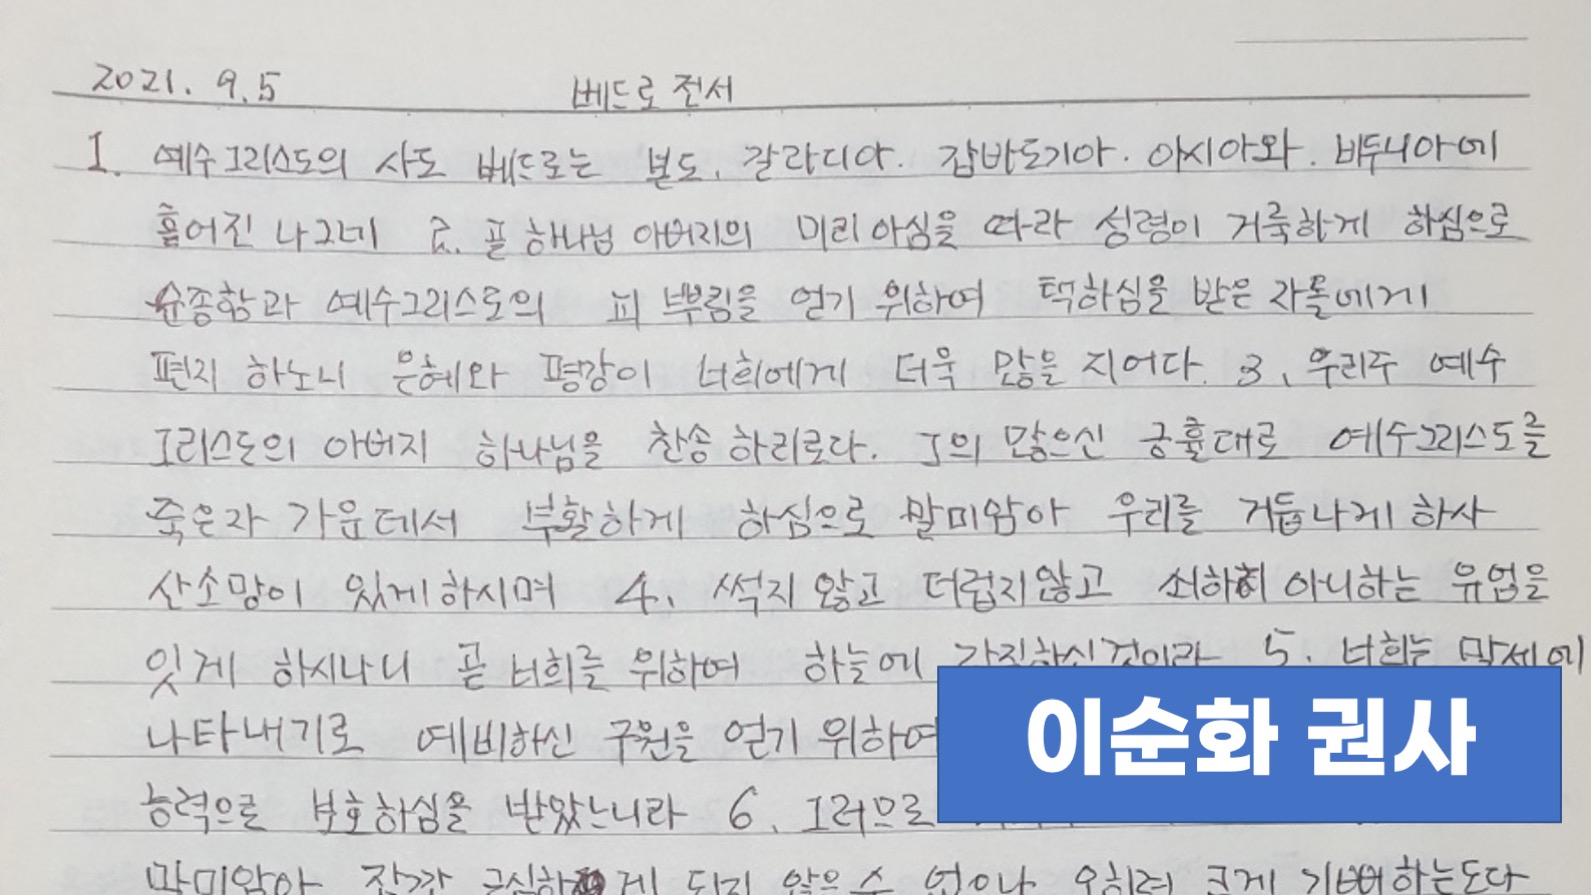 2021. 9.5 베드로 전서
1. 예수그리스도의 사도 베드로는 본도. 갈라디아. 갑바도기아. 아시아와. 비두니아에
흩어진 나그네 2. 곧 하나님 아버지의 미리 아심을 따라 성령이 거룩하게 하심으로
순종함과 예수그리스도의 피 뿌림을 얻기 위하여 택하심을 받은 자들에게
편지 하노니 은혜와 평강이 너희에게 더욱 많을 지어다. 3. 우리주 예수
그리스도의 아버지 하나님을 찬송 하리로다. 그의 많으신 긍휼대로 예수그리스도를
죽은자 가운데서 부활하게 하심으로 말미암아 우리를 거듭나게 하사
산소망이 있게 하시며 4. 썩지 않고 더럽지않고 쇠하지 아니하는 유업을
잇게 하시나니 곧 너희를 위하여 하늘에 간직하신것이라 5. 너희는 말세에
나타내기로 예비하신 구원을 얻기 위하여
능력으로 보호하심을 받았느니라 6. 그러므로
말미암아 잠깐 근심하게 되지 않을 수 없으나 오히려 크게 기뻐하는도다
이순화 권사